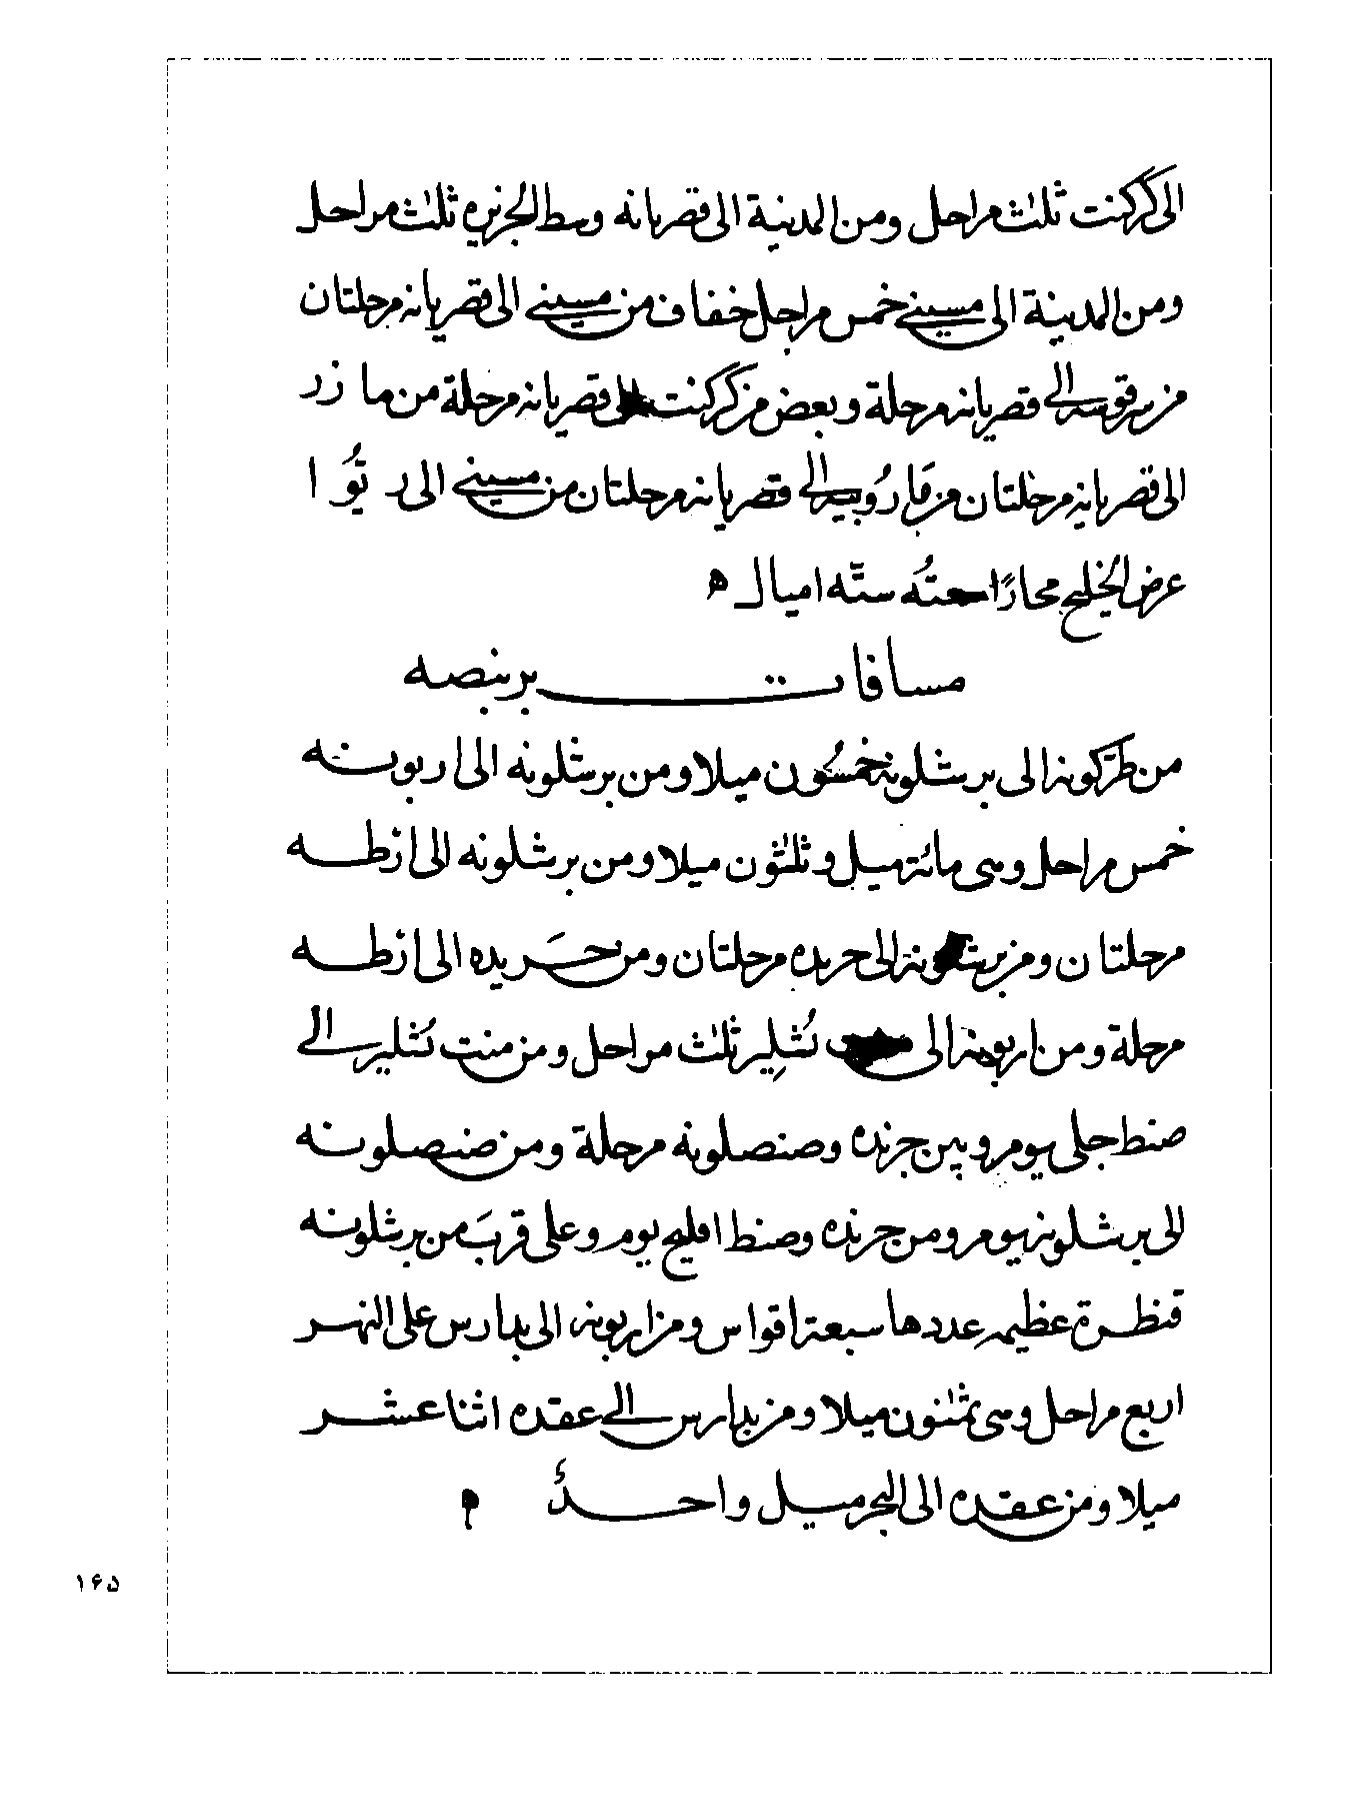 الى كركنت ثلٰث مراحل ومن المدينة الى قصريانه وسط الجزيره ثلٰث مراحل
ومن المدينة الى مسيني خمس مراحل خفاف من مسيني الى قصريانه مرحلتان
من سرقوسه الى قصريانه مرحلة وبعض من كركنت الى قصريانه مرحلة من مازر
الى قصريانه مرحلتان من الى قصريانه مرحلتان من مسيني الى ريُّوا
عرض الخليج مجازًا ستّه اميال ه
مسافات بربنصه
من طرّكونه الى برشلونه خمسُون ميلا ومن برشلونه الى اربونه
خمس مراحل وهى مائة ميل وثلٰثون ميلا ومن برشلونه الى ازطه
مرحلتان ومن برشلونه الى جريده مرحلتان ومن جَريده الى ازطه
مرحلة ومن اربونه الى نُشلِير ثلٰث مراحل ومن منت نُشلير الى
صنط جلى يوم وبين جرنده وصنصلونه مرحلة ومن صنصلونه
الى برشلونه يوم ومن جرنده وصنط افليج يوم وعلى قربَ من برشلونه
قنطرة عظيمه عددها سبعة اقواس ومن اربونه الى بدارس على النهر
اربع مراحل وهى ثمٰنون ميلا ومن بدارس الى عقده اثنا عشر
ميلا ومن عقده الى البحر ميل واحدٌ ه
۱۶۵